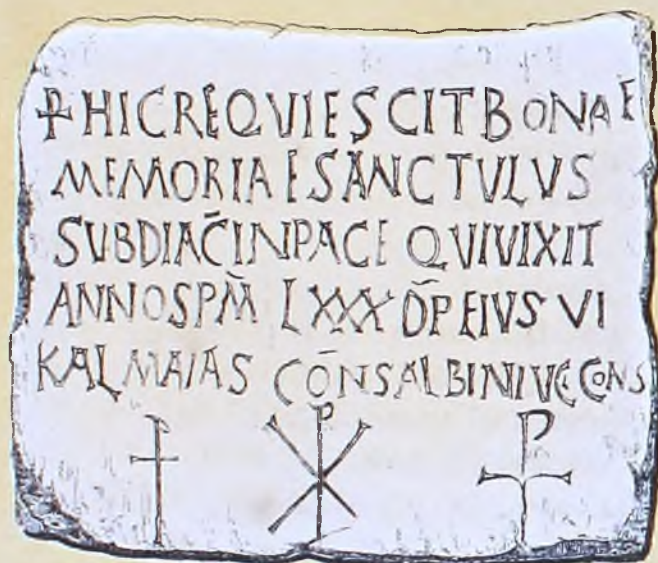 ⳨ HIC REQVIESCIT BONAE
MEMORIAE SANCTVLVS
SVBDIAC̄ IN PACE QVI VIXIT
ANNOS PM̄ LXXX D̄P EIVS VI
KAL MAIAS CŌNS ALBINI VC CONS